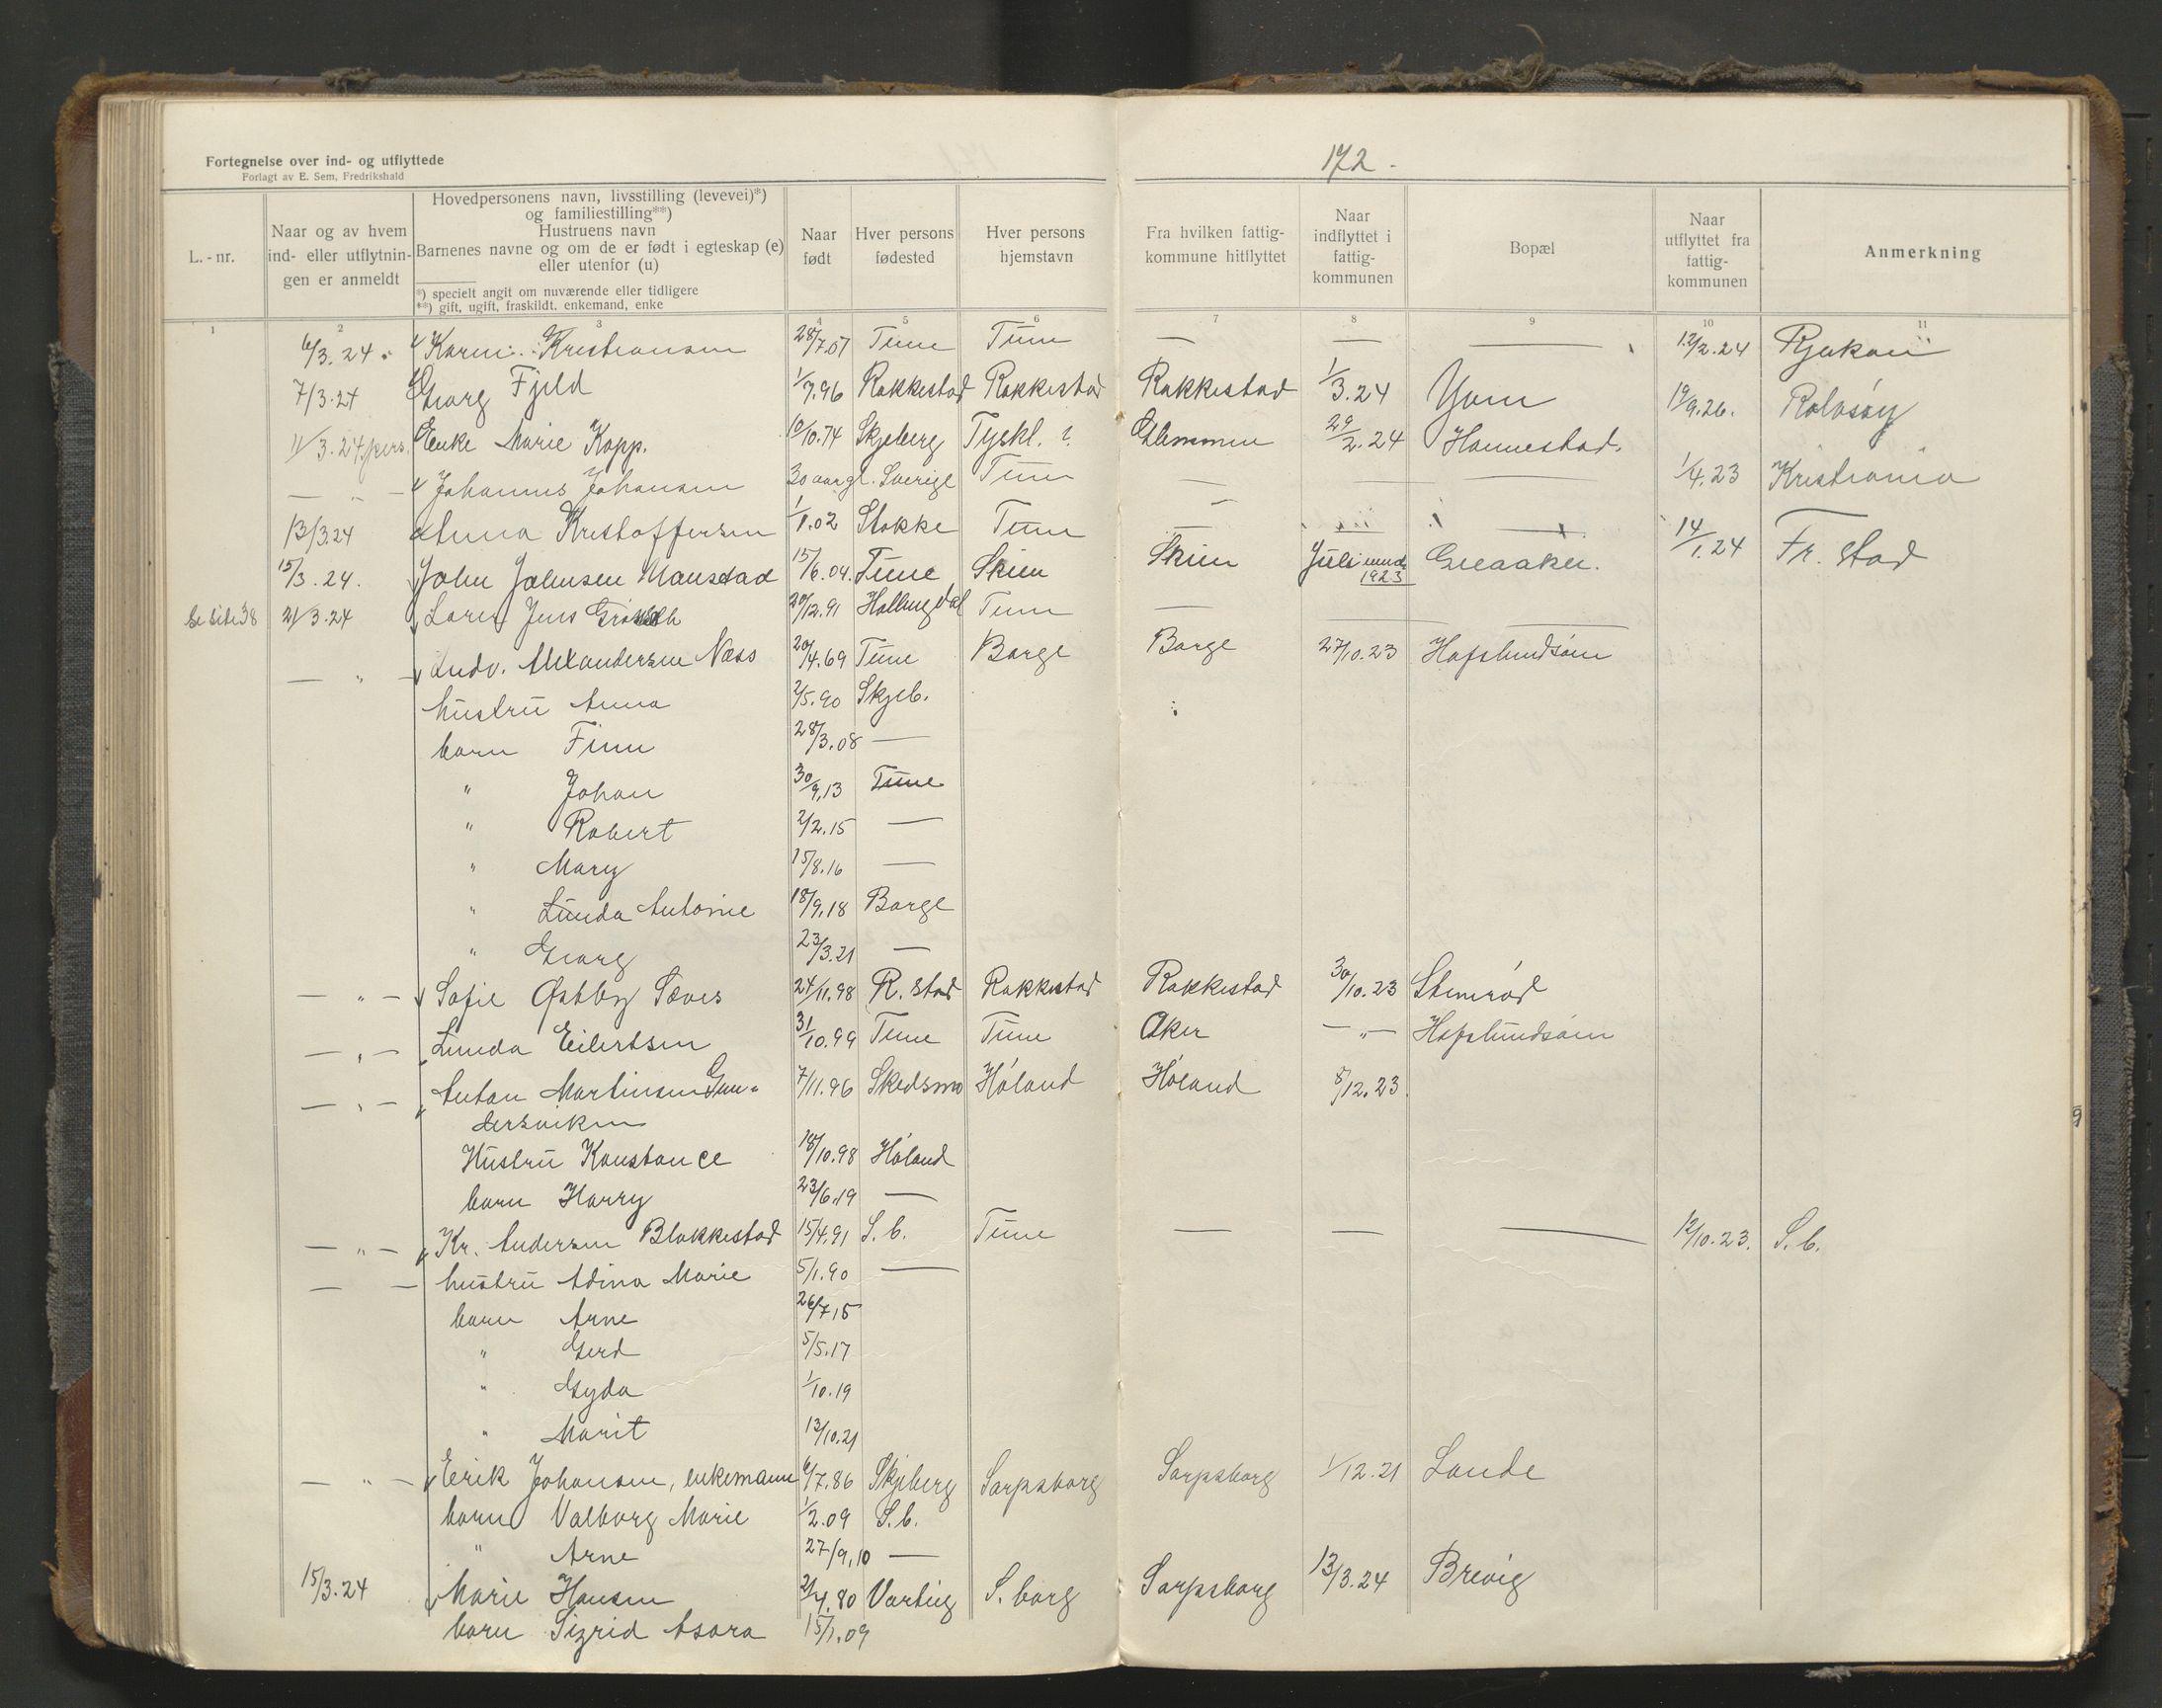 Fortegnelse over ind- og utflyttede
Forlagt av E. Sem, Fredrikshald
172.
L.-nr.
Naar og av hvem ind- eller utflytningen er anmeldt
Hovedpersonens navn, livsstilling (levevei)*) og familiestilling**)
Hustruens navn
Barnenes navne og om de er født i egteskap (e) eller utenfor (u)
*) specielt angit om nuværende eller tidligere
**) gift, ugift, fraskildt, enkemand, enke
Naar født
Hver persons fødested
Hver persons hjemstavn
Fra hvilken fattigkommune hitflyttet
Naar indflyttet i fattigkommunen
Bopæl
Naar utflyttet fra fattigkommunen
Anmerkning
1 2 3 4 5 6 7 8 9 10 11
6/3.24. Karin Kristiansen 28/7.07 Tune Tune — — — 12/2.24 Rjukan
7/3.24 Georg Fjeld 1/7.96 Rakkestad Rakkestad Rakkestad 1/3.24 Yven 19/9.26. Rolvsøy
11/3.24 pers. Enke Marie Kopp. 10/10.74 Skjeberg Tyskl. ? Glemmen 29/2.24 Hannestad.
— " — Johannes Johansen 30 aar gl. Sverige Tune — — — 1/4.23 Kristiania
13/3.24 Anna Kristoffersen 1/1.02 Stokke Tune — — 14/1.24 Fr. stad
15/3.24. John Johnsen Manstad 15/6.04. Tune Skien Skien Juli mnd. 1923 Greaaker.
Se side 38 21/3.24 Lars Jens 20/12.91 Hallingdal Tune — — —
— " — Ludv. Alexandersen Næss 20/4.69 Tune Borge Borge 27/10.23 Hafslundsøen
hustru Anna 2/5.90 Skjeb.
barn Finn 28/3.08 —
" Johan 30/9.13 Tune
" Robert 2/2.15 —
" Mary 15/8.16 —
" Lunda Antonie 18/9.18 Borge
" Georg 23/3.21 —
— " — Sofie Østby Sæves 24/11.98 R. stad Rakkestad Rakkestad 30/10.23 Stenrød
— " — Lunda Eilertsen 31/10.99 Tune Tune Aker — " — Hafslundsøen
— " — Anton Martinsen Gun-
dersviken 7/11.96 Skedsmo Høland Høland 8/12.23.
Hustru Konstance 18/10.98 Høland
barn Harry 23/6.19 —
— " — Kr. Andersen Blakkestad 15/4.91 S.b. Tune — — — 12/10.23. S.b.
— — hustru Adina Marie 5/1.90 —
barn Arne 26/7 15
" Gerd 5/5.17
" Gyda 1/10.19
" Marit 13/10.21
— " — Erik Johansen, enkemann 6/7.86 Skjeberg Sarpsborg Sarpsborg 1/12.21 Lande
barn Valborg Marie 1/2.09 S.b.
" Arne 27/9.10 —
15/3.24 Marie Hansen 2/4.80 Varteig S. borg Sarpsborg 13/3.24 Brevig
barn Sigrid Asora 15/1.09